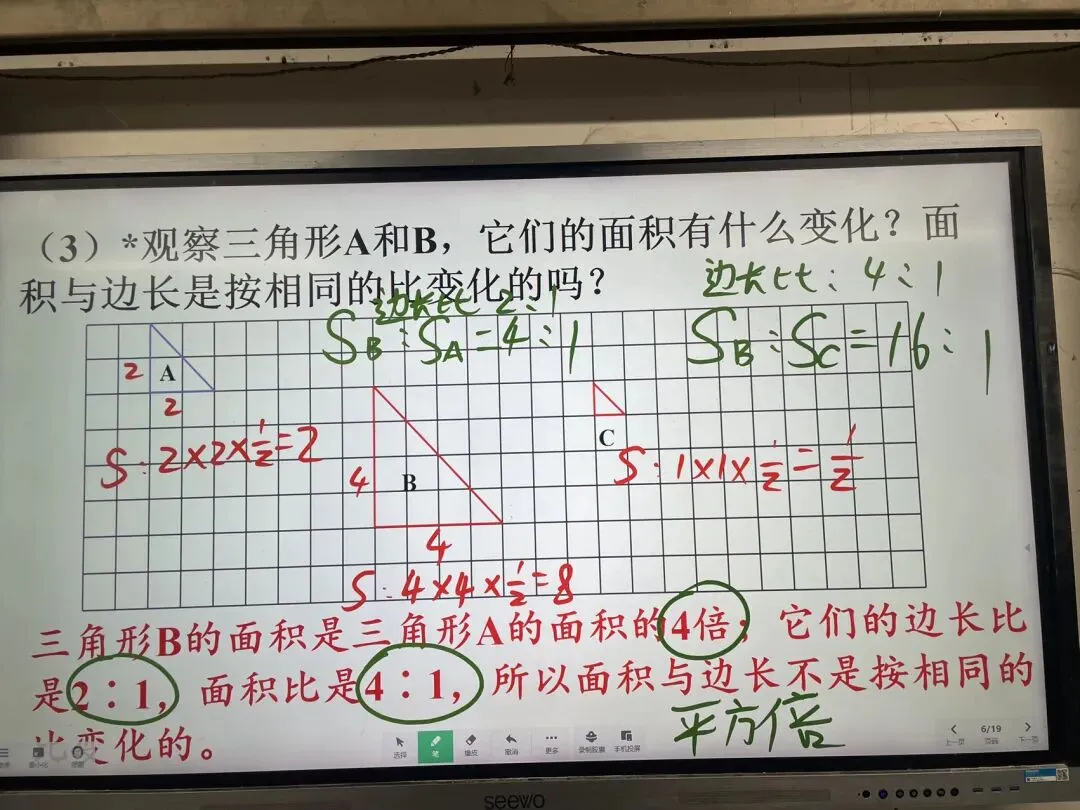 （3）*观察三角形A和B，它们的面积有什么变化？面
积与边长是按相同的比变化的吗？
边长比 2：1
边长比：4：1
S_B：S_A=4：1
S_B：S_C=16：1
2
A
2
S：2×2×1/2=2
4
B
4
S：4×4×1/2=8
C
S：1×1×1/2=1/2
三角形B的面积是三角形A的面积的4倍；它们的边长比
是2：1，面积比是4：1，所以面积与边长不是按相同的
比变化的。
平方倍
选择
笔
橡皮
撤消
更多
录制胶囊
手机投屏
上一页
6/19
下一页
seewo